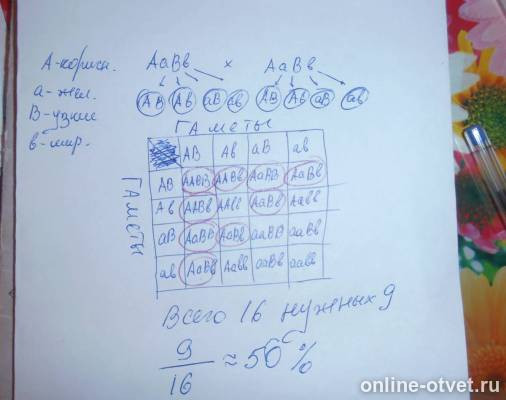 А-коричн. АаВв х АаВв
а-жел. АВ Ав аВ ав АВ Ав аВ ав
В-узкие ГАметы
в-шир.
АВ Ав аВ ав
ГАметы
АВ ААВВ ААВв АаВВ АаВв
Ав ААВв ААвв АаВв Аавв
аВ АаВВ АаВв ааВВ ааВв
ав АаВв Аавв ааВв аавв
Всего 16 нужных 9
9/16 ≈ 56%
online-otvet.ru